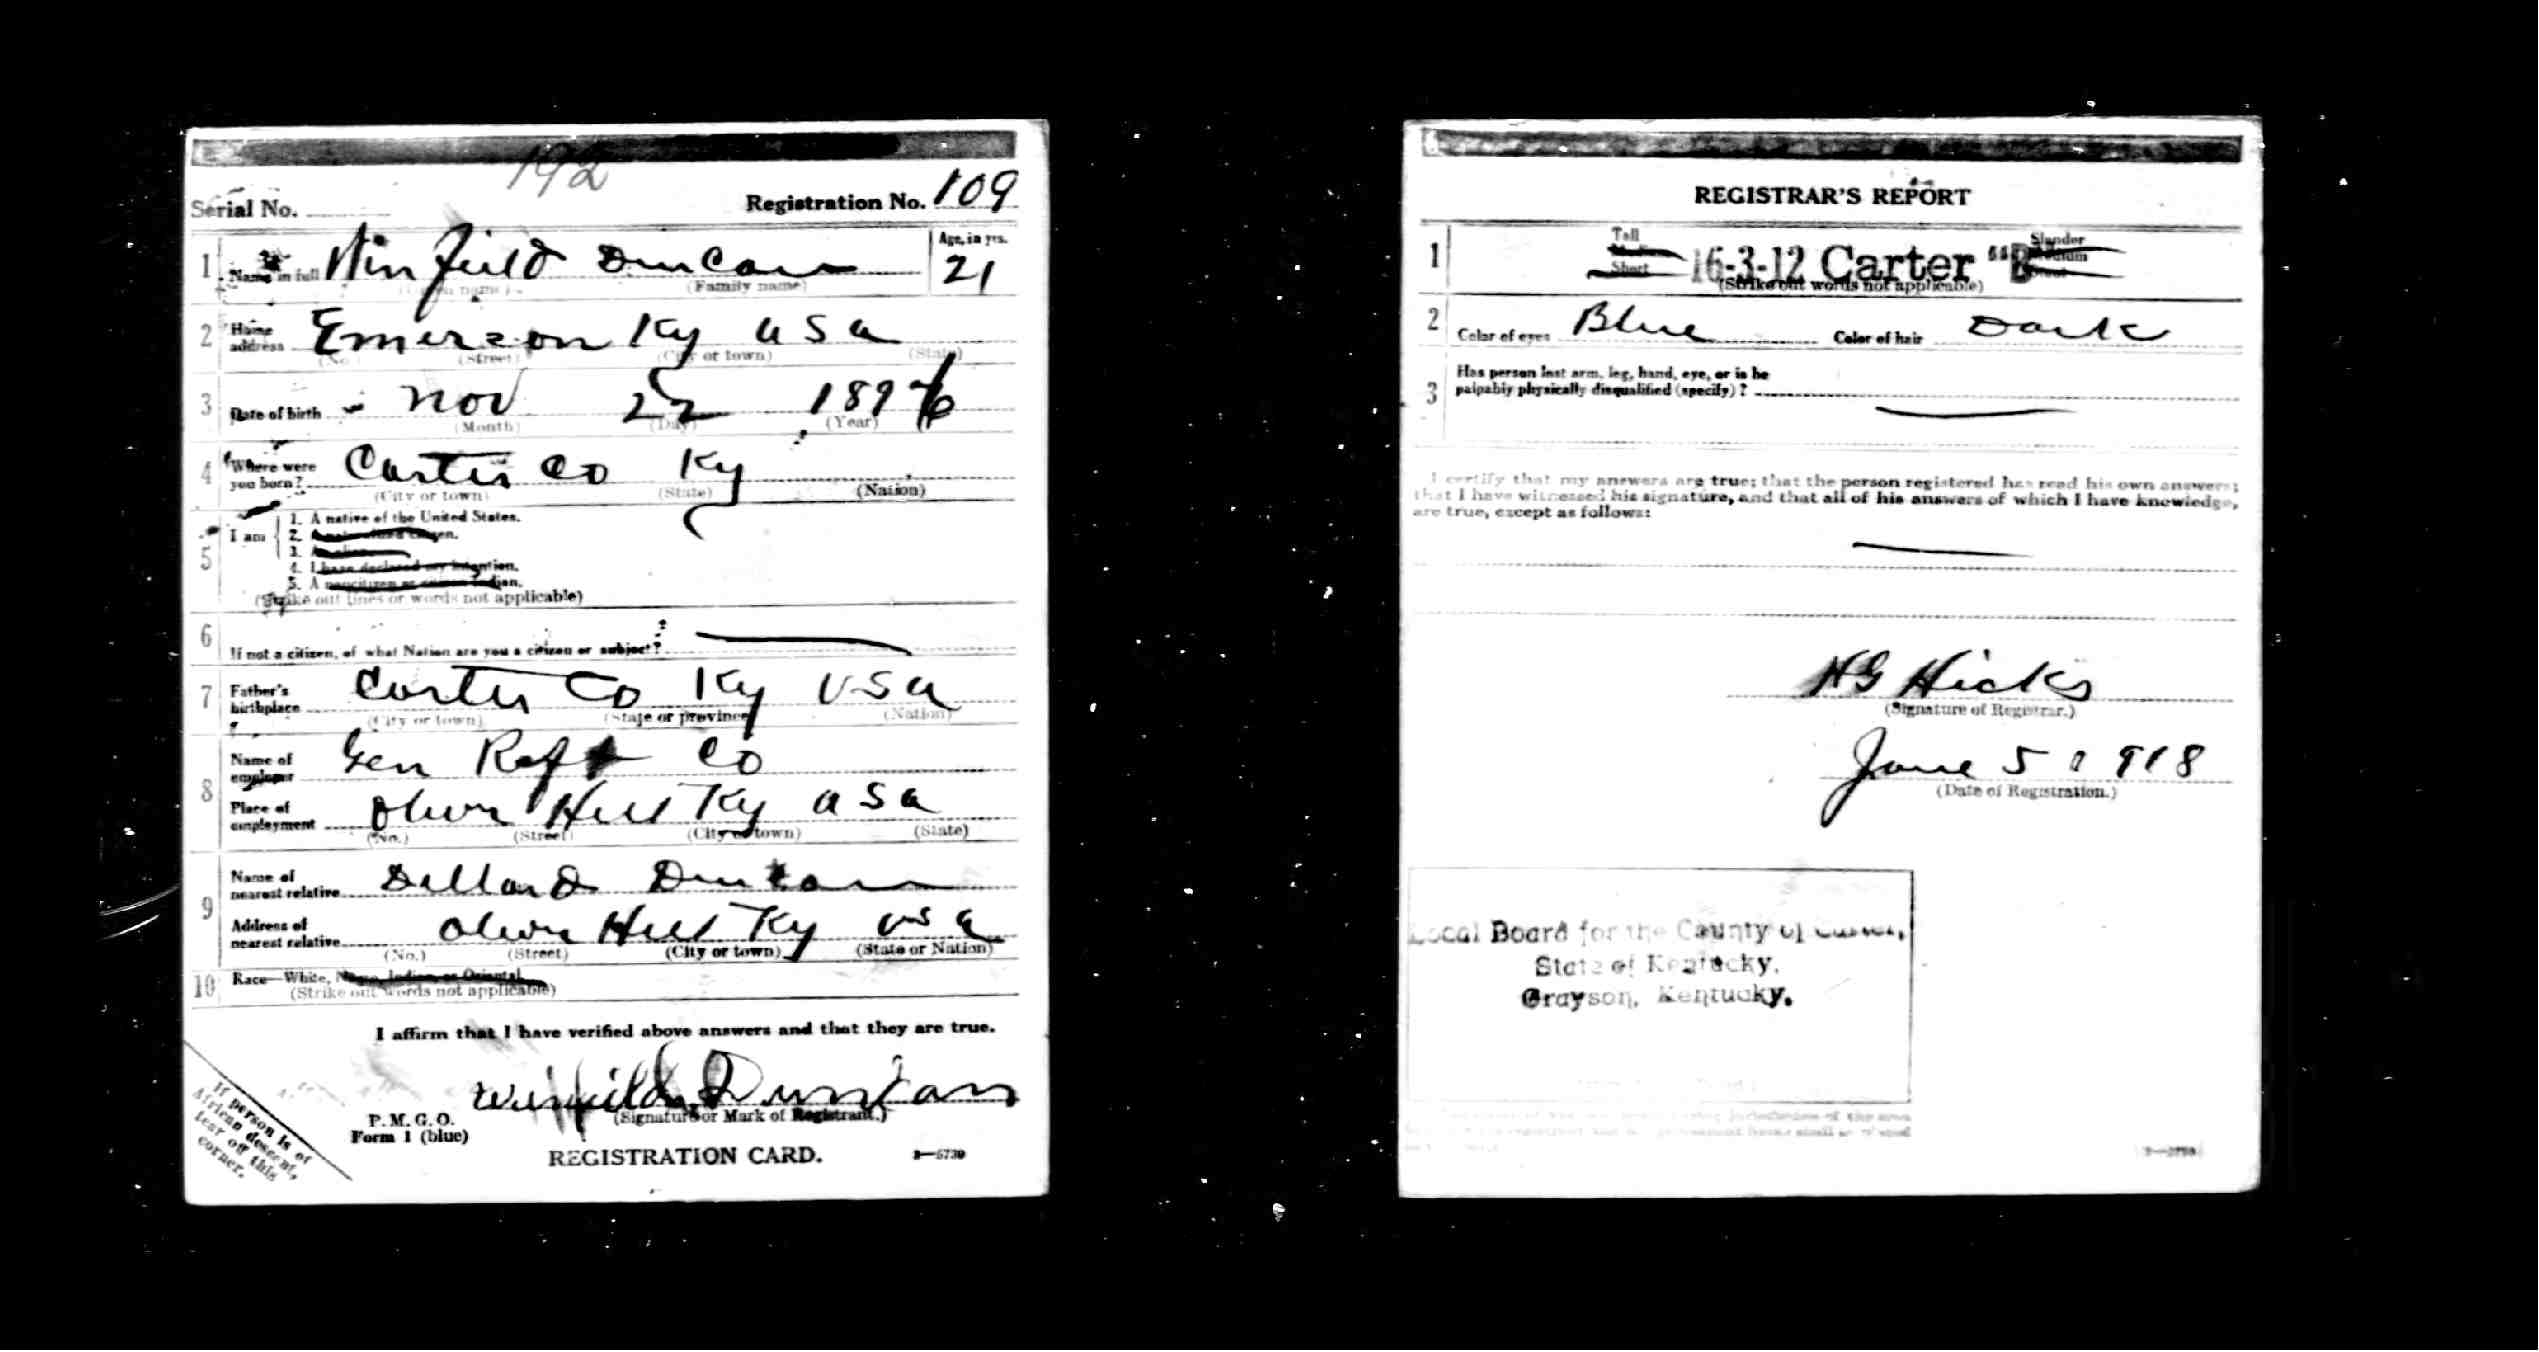 192
Serial No. Registration No. 109
1 Name in full Winfield Duncan Age, in yrs. 21
(Family name)
2 Home address Emerson Ky USA
(No.) (Street) (City or town) (State)
3 Date of birth Nov 22 1896
(Month) (Day) (Year)
4 Where were you born? Carter Co Ky
(City or town) (State) (Nation)
5 I am
1. A native of the United States.
2. A naturalized citizen.
3. An alien.
4. I have declared my intention.
5. A noncitizen or citizen Indian.
(Strike out lines or words not applicable)
6 If not a citizen, of what Nation are you a citizen or subject?
7 Father's birthplace Carter Co Ky USA
(City or town) (State or province) (Nation)
8 Name of employer Gen Raft Co
Place of employment Olive Hill Ky USA
(No.) (Street) (City or town) (State)
9 Name of nearest relative Dillard Duncan
Address of nearest relative Olive Hill Ky USA
(No.) (Street) (City or town) (State or Nation)
10 Race—White, Negro, Indian, or Oriental
(Strike out words not applicable)
I affirm that I have verified above answers and that they are true.
Winfield Duncan
(Signature or Mark of Registrant.)
P. M. G. O.
Form 1 (blue)
REGISTRATION CARD. 3—5739
If person is of
African descent,
tear off this
corner.
REGISTRAR'S REPORT
1 Tall Short 16-3-12 Carter "B" Slender Medium
(Strike out words not applicable)
2 Color of eyes Blue Color of hair Dark
3 Has person lost arm, leg, hand, eye, or is he
palpably physically disqualified (specify)?
I certify that my answers are true; that the person registered has read his own answers;
that I have witnessed his signature, and that all of his answers of which I have knowledge,
are true, except as follows:
HG Hicks
(Signature of Registrar.)
June 5 1918
(Date of Registration.)
Local Board for the County of Carter,
State of Kentucky,
Grayson, Kentucky.